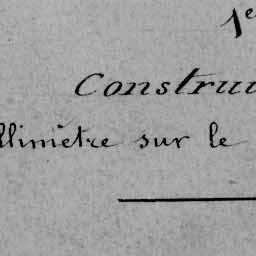 1e
Constru
llimètre sur le